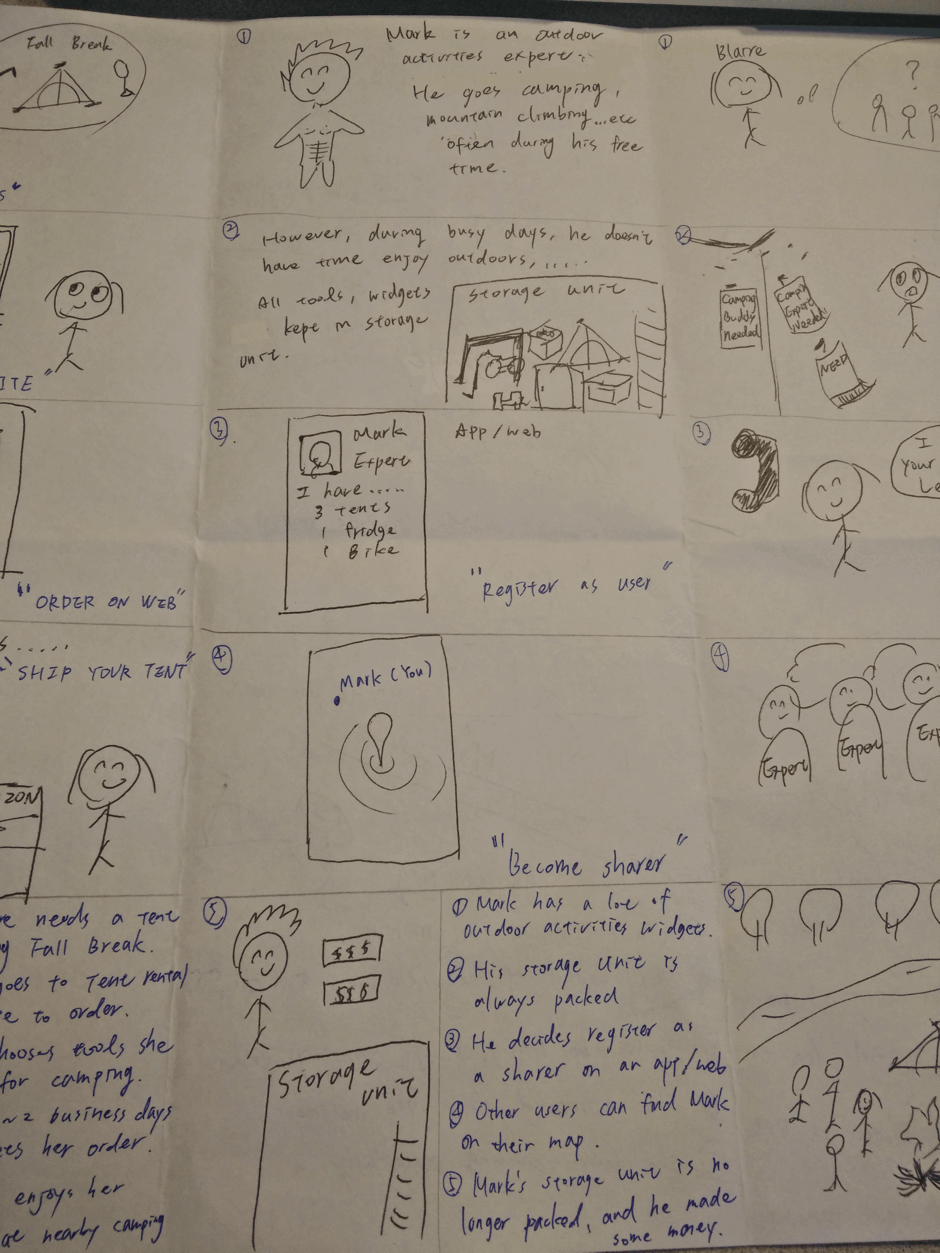 Fall Break
S"
ITE"
"ORDER ON WEB"
S.....
"SHIP YOUR TENT"
ZON
needs a Tent
Fall Break.
goes to Tent rental
to order.
tools she
for camping.
~2 business days
her order.
enjoys her
nearby camping
①
Mark is an outdoor
activities expert.
He goes camping,
mountain climbing...etc
often during his free
time.
②
However, during busy days, he doesn't
have time enjoy outdoors,.....
All tools, widgets
kept in storage
unit.
Storage unit
③.
Mark
Expert
I have.....
3 tents
1 fridge
1 Bike
App/web
"Register as user"
④
Mark (You)
"Become sharer"
⑤
$$$
$$$
Storage
unit
① Mark has a lot of
outdoor activities widgets.
② His storage unit is
always packed
③ He decides register as
a sharer on an app/web
④ Other users can find Mark
on their map.
⑤ Mark's storage unit is no
longer packed, and he made
some money.
①
Blaire
?
②
Camping
Buddy
Needed
Camping
Expert
Needed
NEED
③
I
your
④
Expert
Expert
Exp
⑤